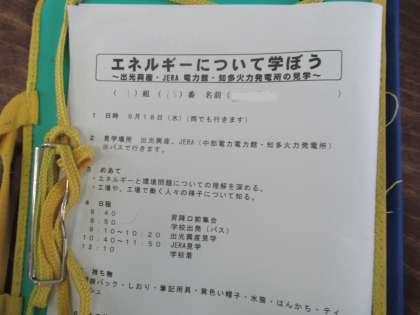 エネルギーについて学ぼう
～出光興産・JERA 電力館・知多火力発電所の見学～
( )組 ( )番 名前( )
1 日時 6月18日(水)(雨でも行きます)
2 見学場所 出光興産、JERA(中部電力電力館・知多火力発電所)
※バスで行きます。
3 めあて
・エネルギーと環境問題についての理解を深める。
・工場や、工場で働く人々の様子について知る。
4 日程
8:40 昇降口前集会
学校出発(バス)
9:10～10:20 出光興産見学
10:40～11:50 JERA見学
12:10 学校着
持ち物
パック・しおり・筆記用具・黄色い帽子・水筒・はんかち・ティ
シュ